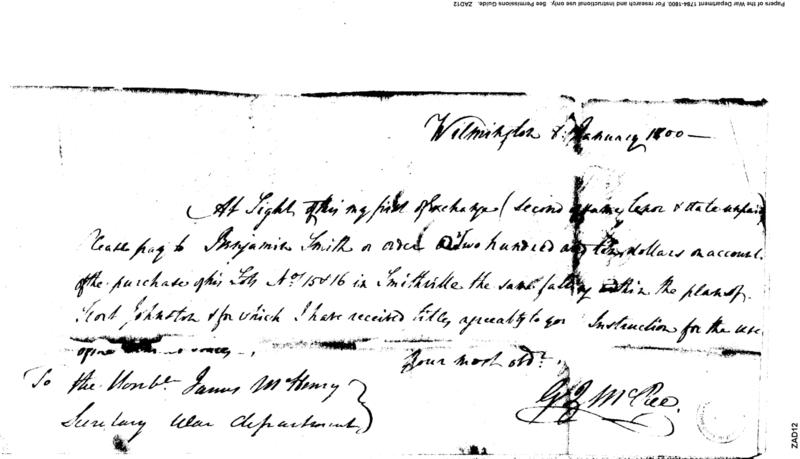 Papers of the War Department 1784-1800. For research and instructional use only. See Permissions Guide. ZAD12
Wilmington 8 January 1800 —
At Sight of this my first of Exchange (Second of same tenor & date unpaid)
Please pay to Benjamin Smith or order Two hundred and ten dollars on account
of the purchase of his Lots No. 15 & 16 in Smithville the same falling within the plan of
Fort Johnston & for which I have received titles agreeably to your Instruction for the use
of
Your most obdt.
To the Honble. James McHenry
Secretary War department
ZAD12